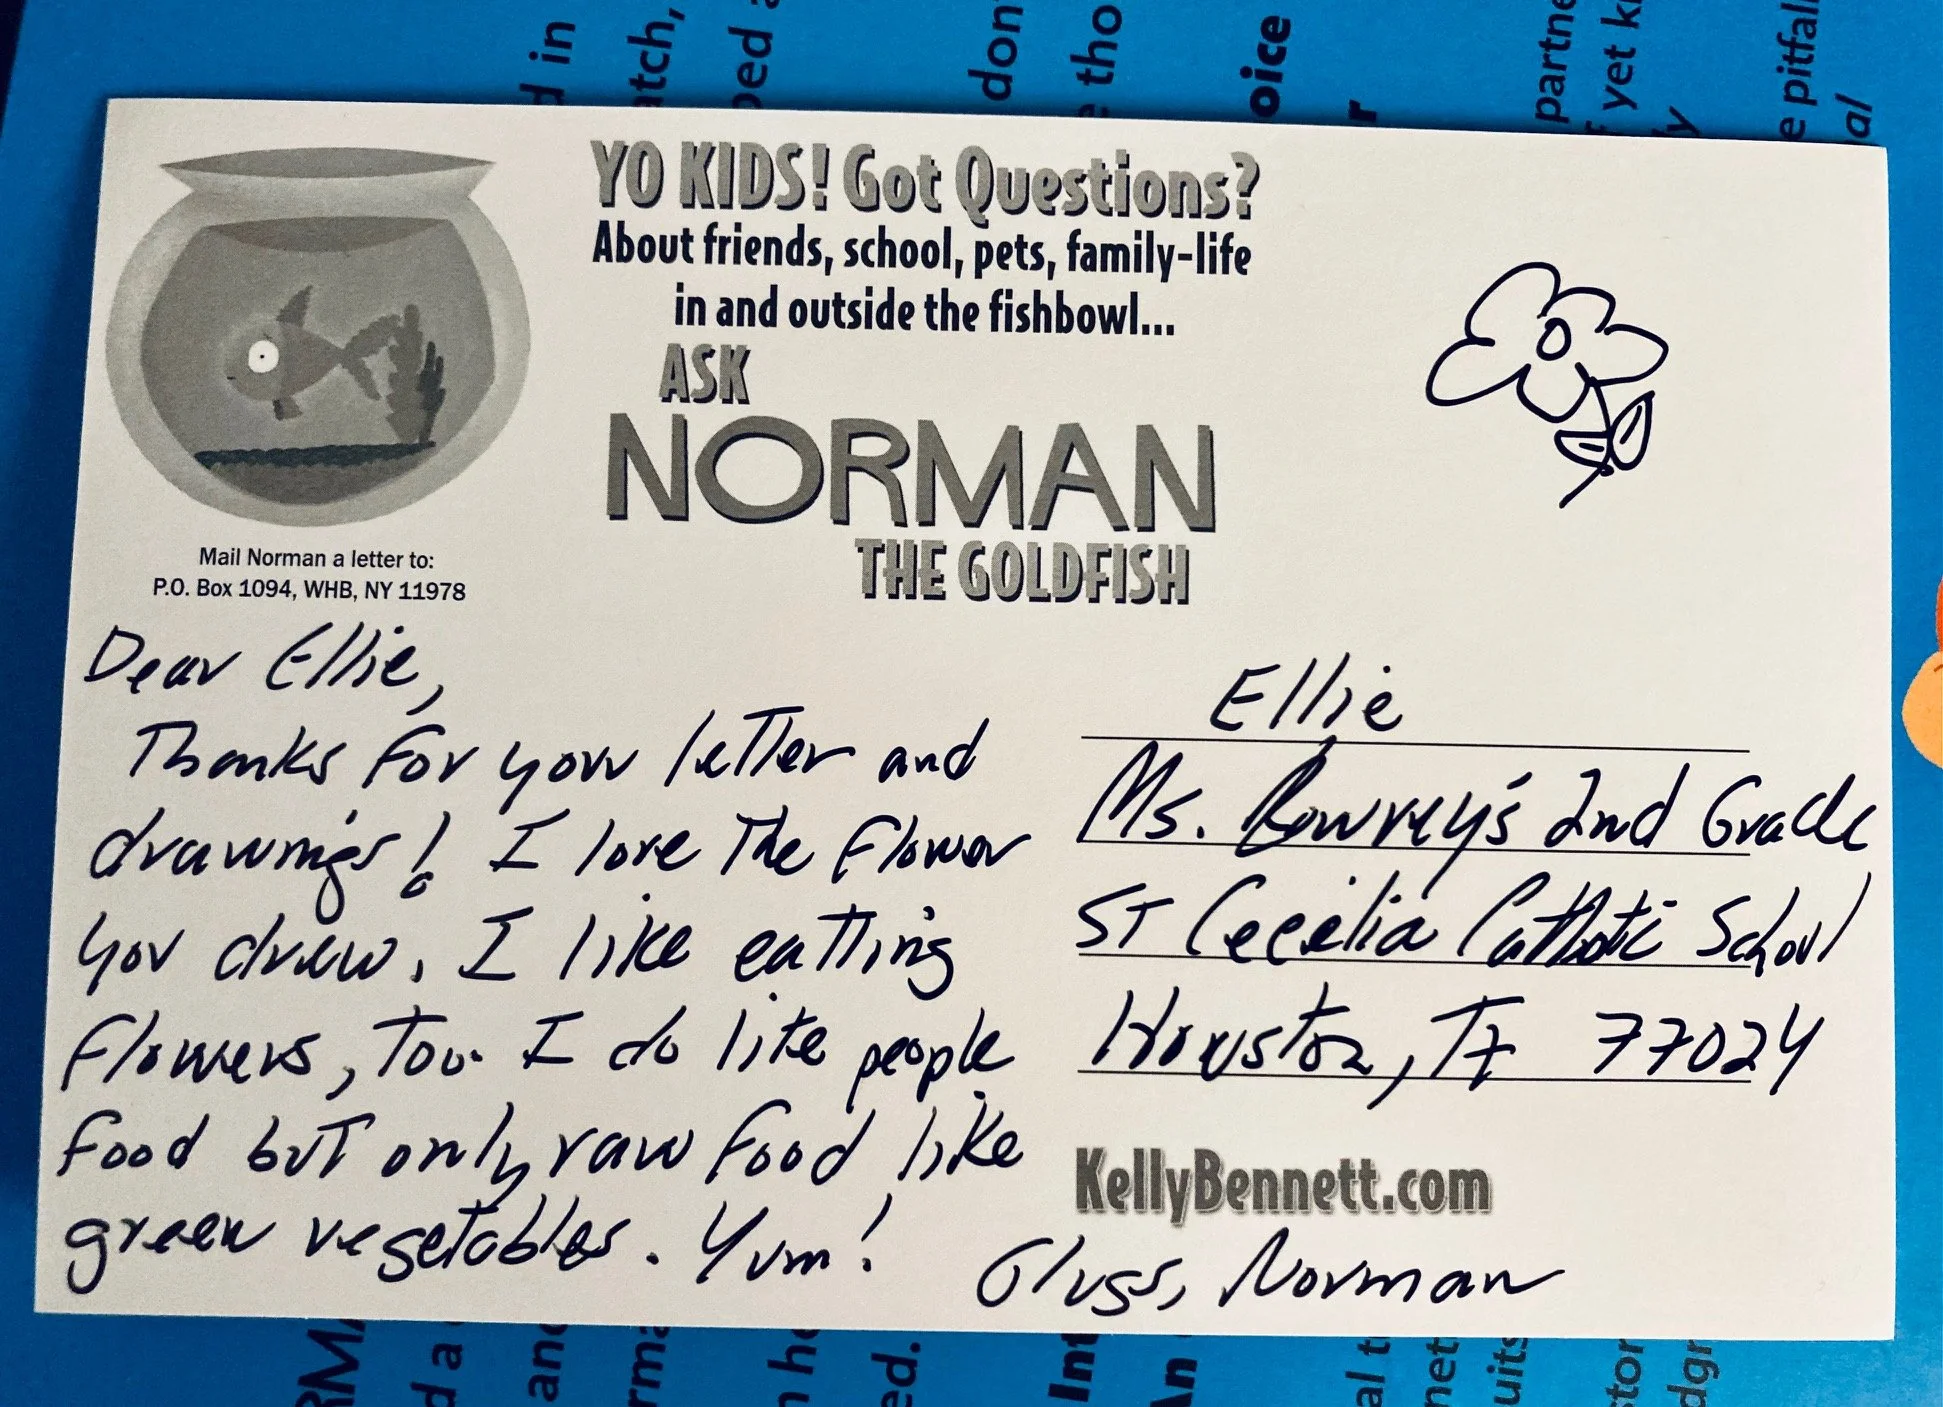 YO KIDS! Got Questions?
About friends, school, pets, family-life
in and outside the fishbowl...
ASK
NORMAN
THE GOLDFISH
Mail Norman a letter to:
P.O. Box 1094, WHB, NY 11978
Dear Ellie,
Thanks for your letter and
drawings! I love the flower
you drew. I like eatting
flowers, too. I do like people
food but only raw food like
green vegetables. Yum!
Glugs, Norman
Ellie
Ms. Rowrey's 2nd Grade
ST Cecelia Catholic School
Houston, TX 77024
KellyBennett.com
d in
atch,
don
tho
oice
r
partne
yet k
y
e pitfal
al
RM
d a
and
rma
ed.
Int
An
al t
nett
uits
stor
dgr